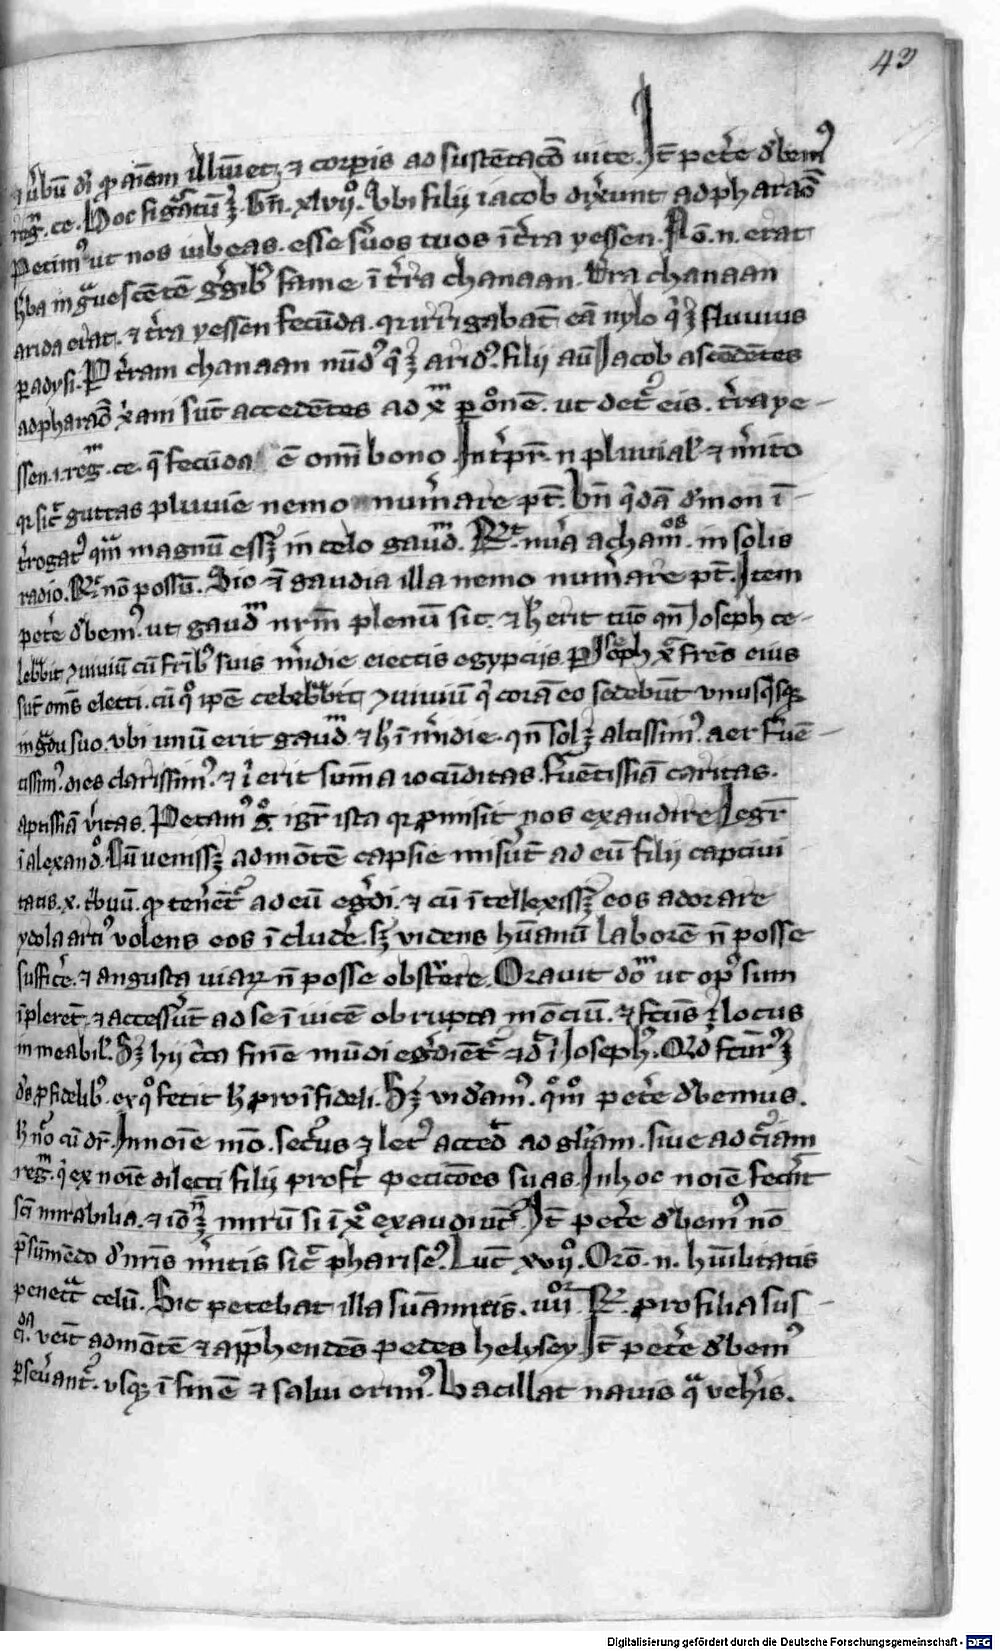 43
⁊ v̾bū dī ꝓ aīam illūīet ⁊ corꝑis ad sustētacō̄ vite. It̄ pet̾e dꝫbemꝰ
regͫ. ce. Hoc figᵃtū ē. Gn̄. xlvijᵒ. Vbi filij iacob dix̾unt ad pharaō
Petimꝰ ut nos iubeas esse s̾uos tuos ī t̾ra yessen. Nō. n. erat
h̾ba ingᵃuescētē gᵉgibꝰ fame ī t̾ra chanaan. t̾ra chanaan
arida erat. ⁊ t̾ra yessen fecūda. qꝛ irrigabat eā nylo qⁱ ē fluuius
ꝑadysi. P t̾ram chanaan mūdꝰ qⁱ ē aridꝰ. filij aū Jacob ascēdētes
ad pharaō xⁱani sūt accedētes ad xͫ ꝑ oͦnē. ut det̾ eis. t̾ra ye-
ssen .i. regͫ. ce. q̄ fecūda ē omī bono Int̾pr̄. n pluuial̾ ⁊ m̾ito
qꝛ sic̾ guttas pluuie nemo num̾are pt̄. Vn̄ qⁱdā dꝫmon ī-
t̾rogatꝰ qᵃm magnū ess̾ in celo gaudͫ. Rt. nūa achamoˢ. in solis
radio. R. nō possū. Sic ⁊ gaudia illa nemo num̾are pt̄. Item
pet̾e dꝫbemꝰ. ut gaudͫ nrm̄ plenū sit. ⁊ h̾ erit tūc qn̄ Joseph ce-
leb̾bit ꝯuiuiū cū fr̄ibꝰ suis m̾idie eiectis egypcijs. P Joseph xᵒ frēs eius
sūt oms̄ electi. cū qͦ ip̄e celeb̾bit ꝯuiuiū qⁱ corā eo sedebūt vnusqⁱsqꝫ
in gᵃdu suo. vbi unū erit gaudͫ ⁊ h̾ ī m̾idie. qn̄ sol ē altissimꝰ. aer f̾uē-
tissimꝰ. dies clarissimꝰ. ⁊ ī erit sum̄a iocūditas. f̾uētissīa caritas.
aptissīa v̾itas. Petamꝰ gͦ. igr̄ ista qꝛ ꝓmisit nos exaudire Legr̄
ī alexandͦ. Cū uenissꝫ ad mōtē capsie misr̄ūt ad eū filij captiui-
tatis. x. t̾buū. qꝫ tenet̾ ad eū egᵉdi. ⁊ cū ītellexissꝫ eos adorare
ydola artiꝰ volens eos īclude̾. sꝫ videns hūanū laborē n̄ posse
suffice̾. ⁊ angusta viaꝝ n̄ posse obst̾e. Orauit dōͫ ut opꝰ suum
īpleret. ⁊ access̾ūt ad se īuicē obrupta mōciū. ⁊ fcūs ē locus
inmeabil̾. Sꝫ hij c̾ca finē mūdi egᵉdiēt̾ ⁊ dͥ ī Josephꝰ. Qd̾ fcūrꝰ ē
dꝫs ꝓ fidelibꝰ. ex qͦ fecit h̾ ꝓ infideli. Sꝫ vidamꝰ. qͦmͦ pet̾e dꝫbemus.
h̾ nͦ cū dr̄. In noīe mō. Sec̾us ⁊ letꝰ acced̾ ad gl̾iam. siue ad cᵃiam
regͫ. qⁱ ex noīe dilecti filij ꝓfert peticōes suas. In hoc noīe fec̾ūt
scī mirabilia. ⁊ iōͫ ē mirū si ī xͦ exaudiūt̾. It̄ pet̾e dꝫbemꝰ nō
p̄sūmēdo dꝫ nris m̾itis sic̾ phariseꝰ. Luc̄ xviijᵒ. Orō. n. hūilitatis
penetᵃt celū. Sic petebat illa sūamitis. iiijoꝛ. R. pro filia sus-
cidaͭ. venit ad mōtē ⁊ app̾hendēs pedes helysey It̄ pet̾e dꝫbemꝰ
ꝑseu̾ant̾. usqꝫ ī finē ⁊ salui erimꝰ. Vacillat nauis qᵃ vehīs.
Digitalisierung gefördert durch die Deutsche Forschungsgemeinschaft - DFG